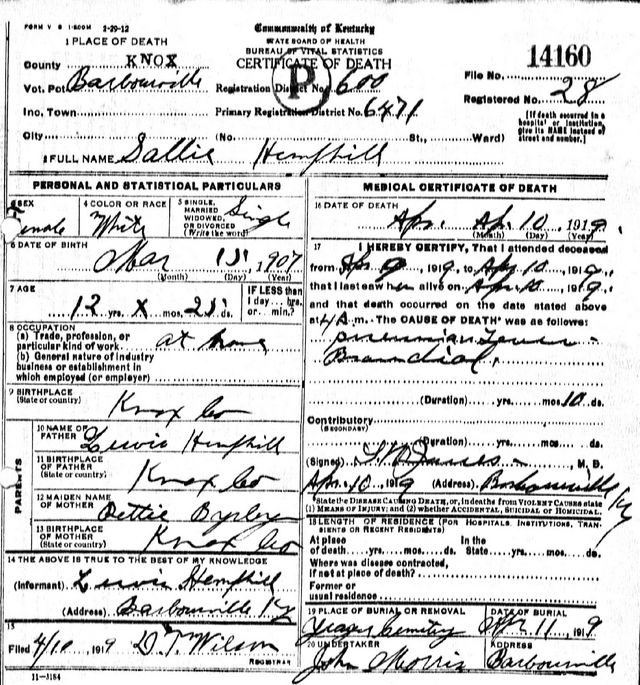 FORM V S 1-500M 2-29-12
Commonwealth of Kentucky
STATE BOARD OF HEALTH
BUREAU OF VITAL STATISTICS
CERTIFICATE OF DEATH
1 PLACE OF DEATH
County KNOX
Vot. Pct Barbourville
Inc. Town
City
(No. St., Ward)
Registration District No. 600
Primary Registration District No. 6471
P
File No. 14160
Registered No. 28
[If death occurred in a
hospital or institution,
give its NAME instead of
street and number.]
2 FULL NAME Sallie Hemphill
PERSONAL AND STATISTICAL PARTICULARS
3 SEX Female
4 COLOR OR RACE White
5 SINGLE, MARRIED WIDOWED, OR DIVORCED (Write the word) Single
6 DATE OF BIRTH Mar 15 1907
(Month) (Day) (Year)
7 AGE
12 yrs. X mos. 25 ds.
IF LESS than
1 day....hrs.
or....min.?
8 OCCUPATION
(a) Trade, profession, or
particular kind of work at home
(b) General nature of industry
business or establishment in
which employed (or employer)
9 BIRTHPLACE
(State or country) Knox Co
PARENTS
10 NAME OF
FATHER Lewis Hemphill
11 BIRTHPLACE
OF FATHER
(State or country) Knox Co
12 MAIDEN NAME
OF MOTHER
13 BIRTHPLACE
OF MOTHER
(State or country) Knox Co
14 THE ABOVE IS TRUE TO THE BEST OF MY KNOWLEDGE
(Informant) Lewis Hemphill
(Address) Barbourville Ky
15
Filed 4/10, 1919 D. T. Wilson
REGISTRAR
11-3184
MEDICAL CERTIFICATE OF DEATH
16 DATE OF DEATH
Apr. Apr 10, 1919.
(Month) (Day) (Year)
17 I HEREBY CERTIFY, That I attended deceased
from Apr 1919, to Apr 10, 1919,
that I last saw her alive on Apr 10, 1919,
and that death occurred on the date stated above
at 4 A. m. The CAUSE OF DEATH* was as follows:
(Duration) yrs. mos. 10 ds.
Contributory
(SECONDARY)
(Duration) yrs. mos. ds.
(Signed) , M. D.
Apr. 10, 1919 (Address) Barbourville Ky
*State the DISEASE CAUSING DEATH, or, in deaths from VIOLENT CAUSES state
(1) MEANS OF INJURY; and (2) whether ACCIDENTAL, SUICIDAL or HOMICIDAL.
18 LENGTH OF RESIDENCE (FOR HOSPITALS, INSTITUTIONS, TRANSIENTS OR RECENT RESIDENTS)
At place
of death....yrs.....mos.....ds.
In the
State....yrs.....mos.....ds.
Where was disease contracted,
if not at place of death?
Former or
usual residence
19 PLACE OF BURIAL OR REMOVAL
Yeager Cemetery
DATE OF BURIAL
Apr 11, 1919
20 UNDERTAKER
John Morris
ADDRESS
Barbourville